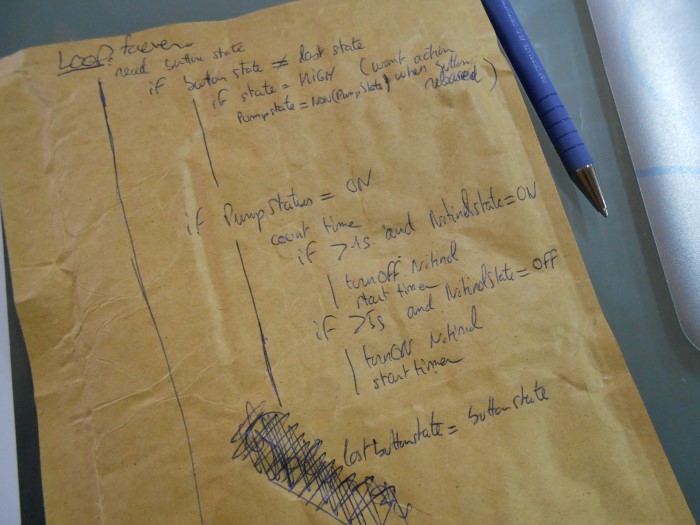 LOOP: forever
read button state
if button state ≠ last state
if state = HIGH (want action
Pumpstate = Non(Pumpstate) when button
released)
if Pumpstatus = ON
count time
if >1s and Notindstate=ON
turnoff Notind
start timer
if >5s and NotindState = OFF
turnON Notind
start timer
lastbuttonstate = button state